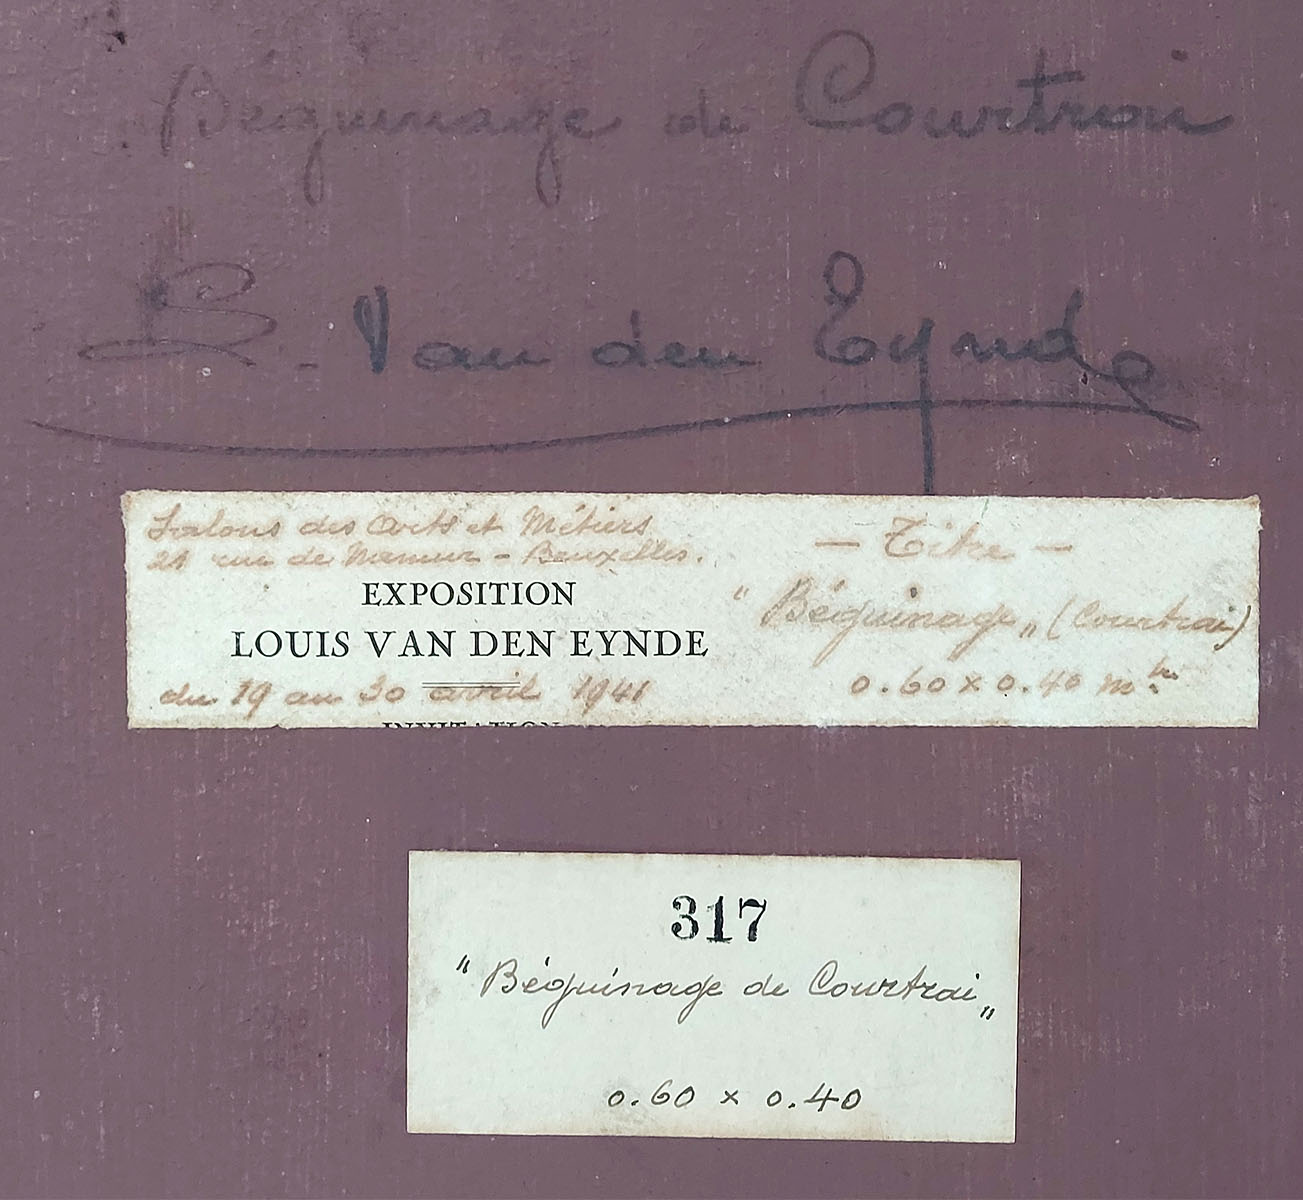 Béguinage de Courtrai
L. Van den Eynde
Salons des Arts et Métiers
21 rue de Namur - Bruxelles.
EXPOSITION
LOUIS VAN DEN EYNDE
du 19 au 30 avril 1941
INVITATION
- Titre -
"Béguinage" (Courtrai)
0.60 x 0.40 m.
317
"Béguinage de Courtrai"
0.60 x 0.40